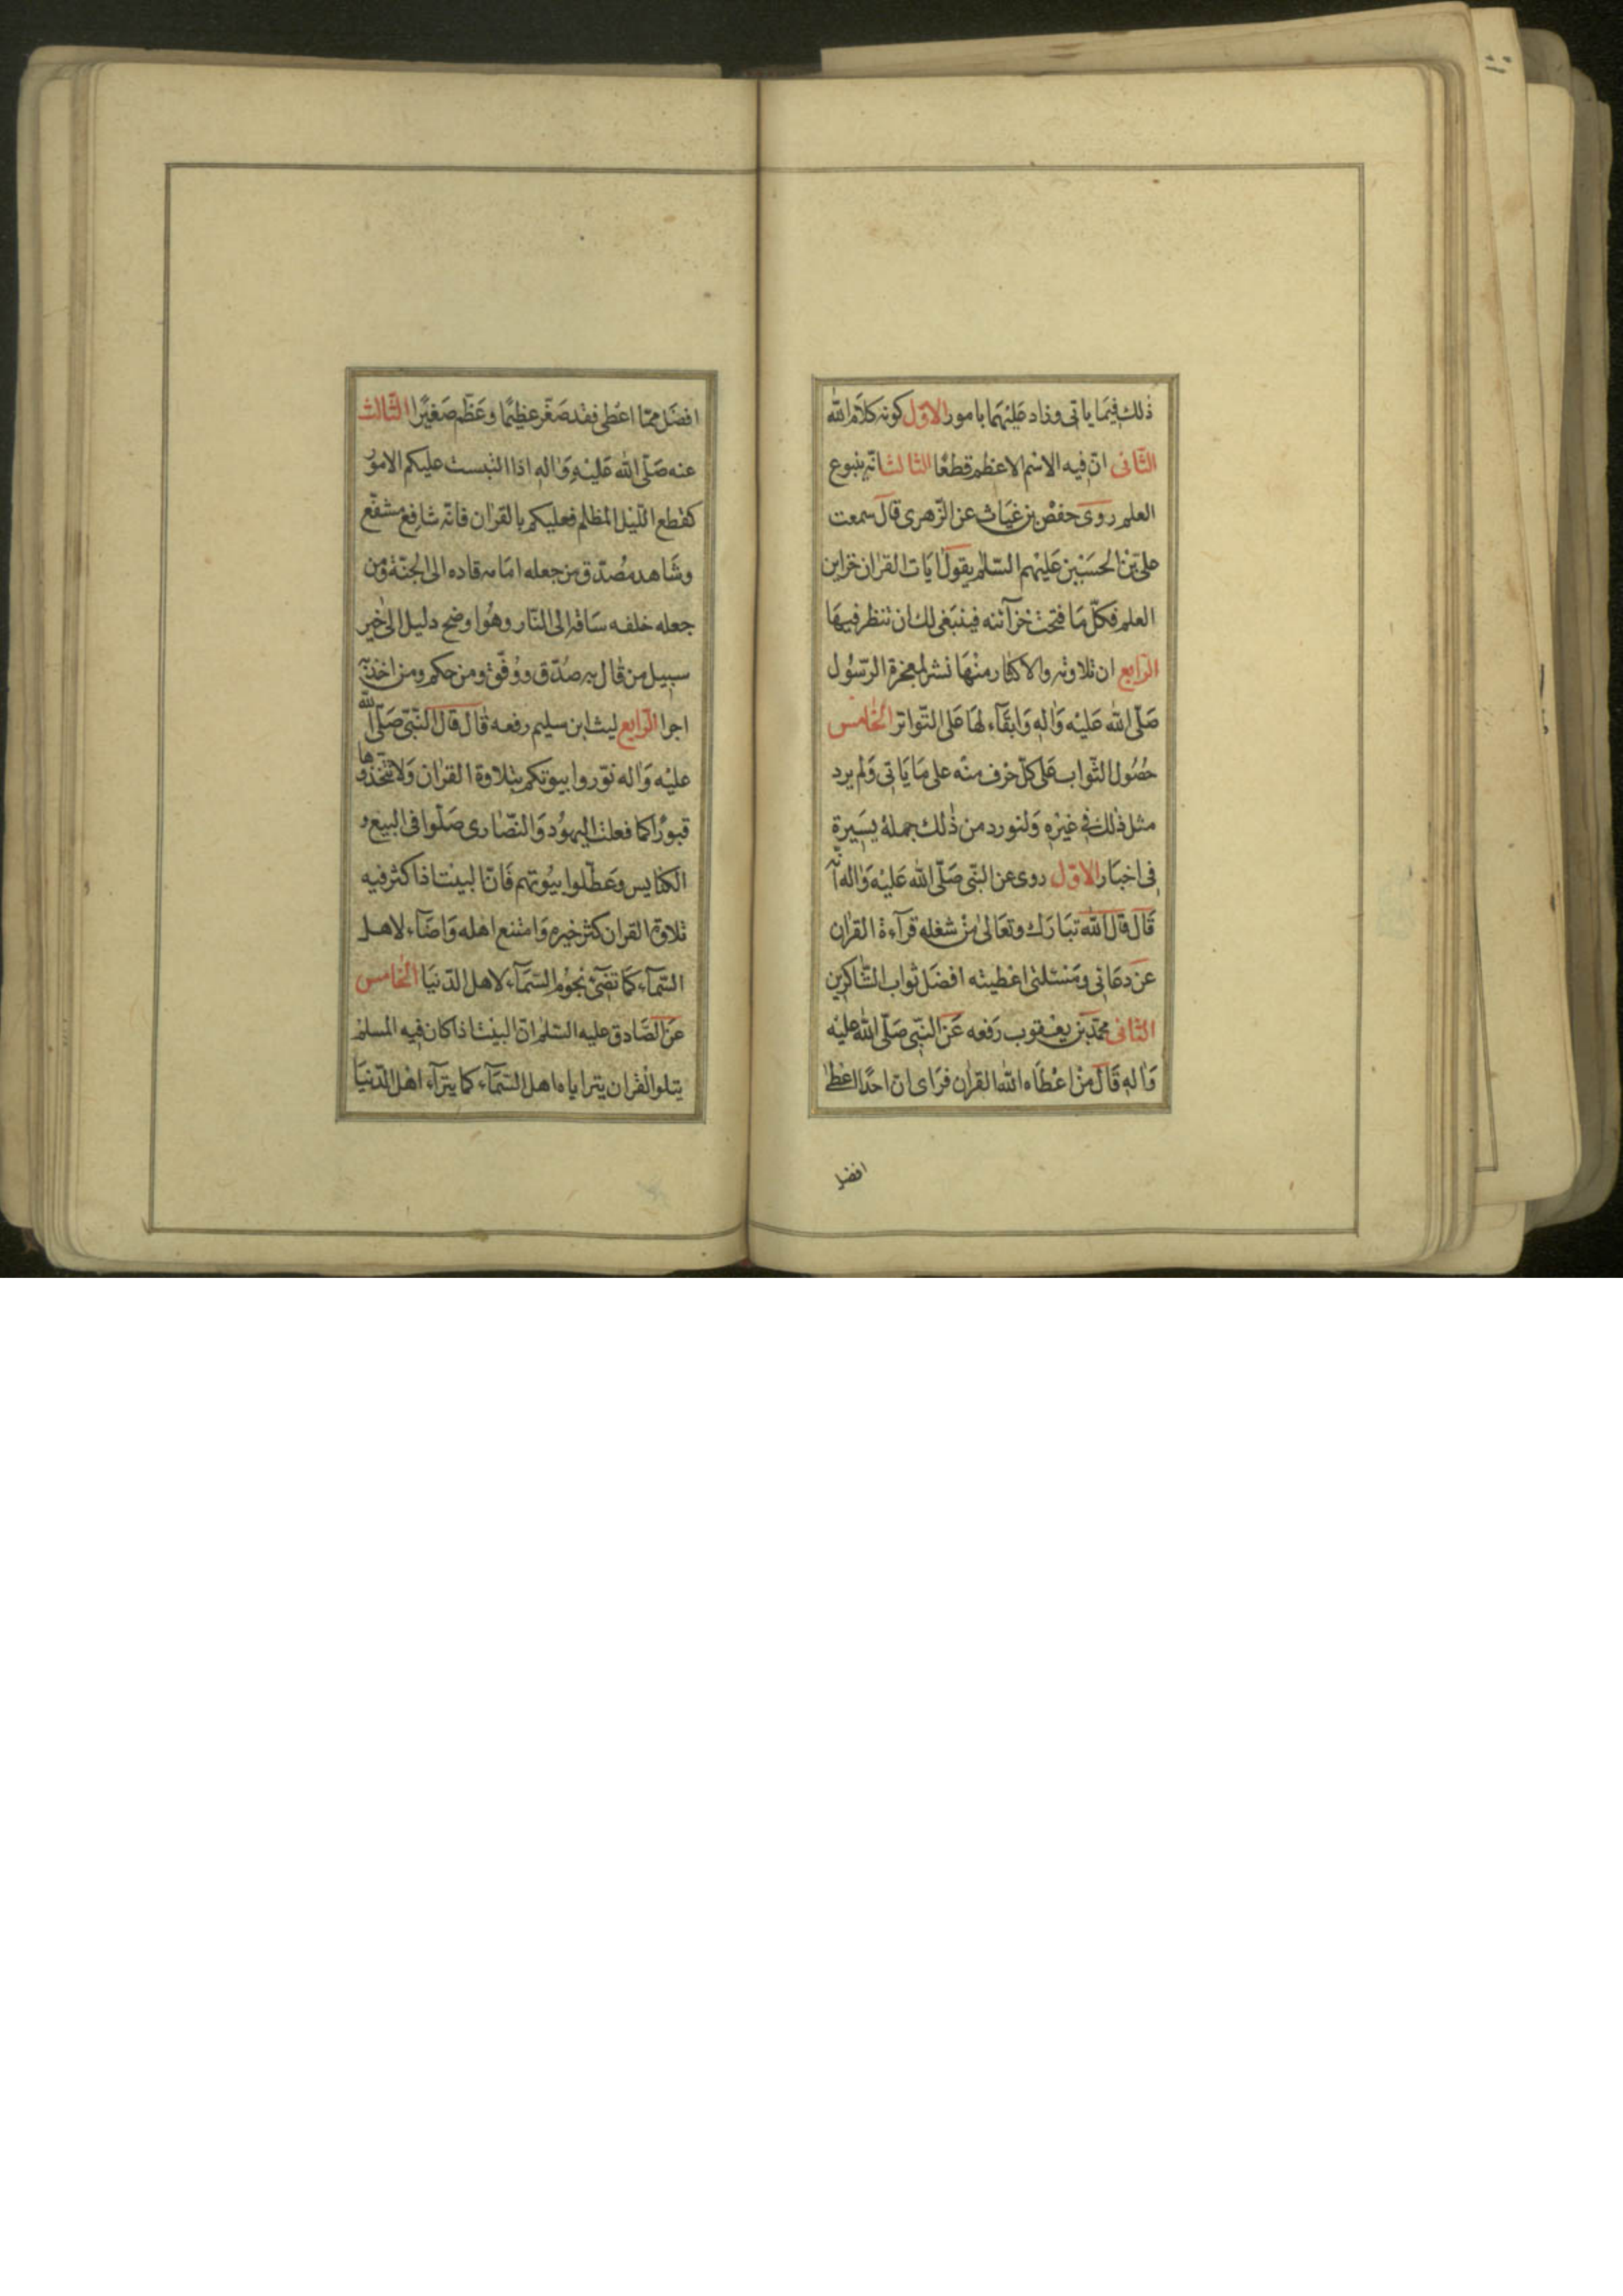 ذلك فيما ياتى وزاد عليهما بامور الاوّل كونه كلام الله
الثّانى انّ فيه الاسم الاعظم قطعًا الثالث انّه ينبوع
العلم روى حفص بن غياث عن الزّهرى قال سمعت
علىّ بن الحسين عليهم السّلم يقول ايات القران خزاين
العلم فكلّ ما فتحت خزآئنه فينبغى لك ان تنظر فيها
الرّابع ان تلاوته والاكثار منها نشر لمعجزة الرّسول
صلّى الله عليه واله وابقآء لها على التّواتر الخامس
حصول الثّواب على كلّ حرف منه على ما ياتى ولم يرد
مثل ذلك فى غيره ولنورد من ذلك جملة يسيرة
فى اخبار الاوّل روى عن النّبى صلّى الله عليه واله انّه
قال قال الله تبارك وتعالى من شغله قرآءة القران
عن دعائى ومسئلتى اعطيته افضل ثواب الشّاكرين
الثانى محمّد بن يعقوب رفعه عن النّبى صلّى الله عليه
واله قال من اعطاه الله القران فراى انّ احدًا اعطى
افضل
افضل ممّا اعطى فقد صغّر عظيمًا وعظّم صغيرًا الثّالث
عنه صلّى الله عليه واله اذا التبست عليكم الامور
كقطع اللّيل المظلم فعليكم بالقران فانّه شافع مشفّع
وشاهد مصدّق من جعله امامه قاده الى الجنّة ومن
جعله خلفه ساقه الى النّار وهو اوضح دليل الى خير
سبيل من قال به صدّق ووفّق ومن حكم ومن اخذ به
اجر الرّابع ليث ابن سليم رفعه قال قال النّبىّ صلّى الله
عليه واله نوّروا بيوتكم بتلاوة القران ولا تتّخذوها
قبورًا كما فعلت اليهود والنصّارى صلّوا فى البيع و
الكنايس وعطّلوا بيوتهم فانّ البيت اذا كثر فيه
تلاوة القران كثر خيره وامتنع اهله واضآء لاهل
السّمآء كما تضىء نجوم السّمآء لاهل الدّنيا الخامس
عن الصّادق عليه السّلم انّ البيت اذا كان فيه المسلم
يتلوا القران يترااياه اهل السّمآء كما يترآء اهل الدّنيا